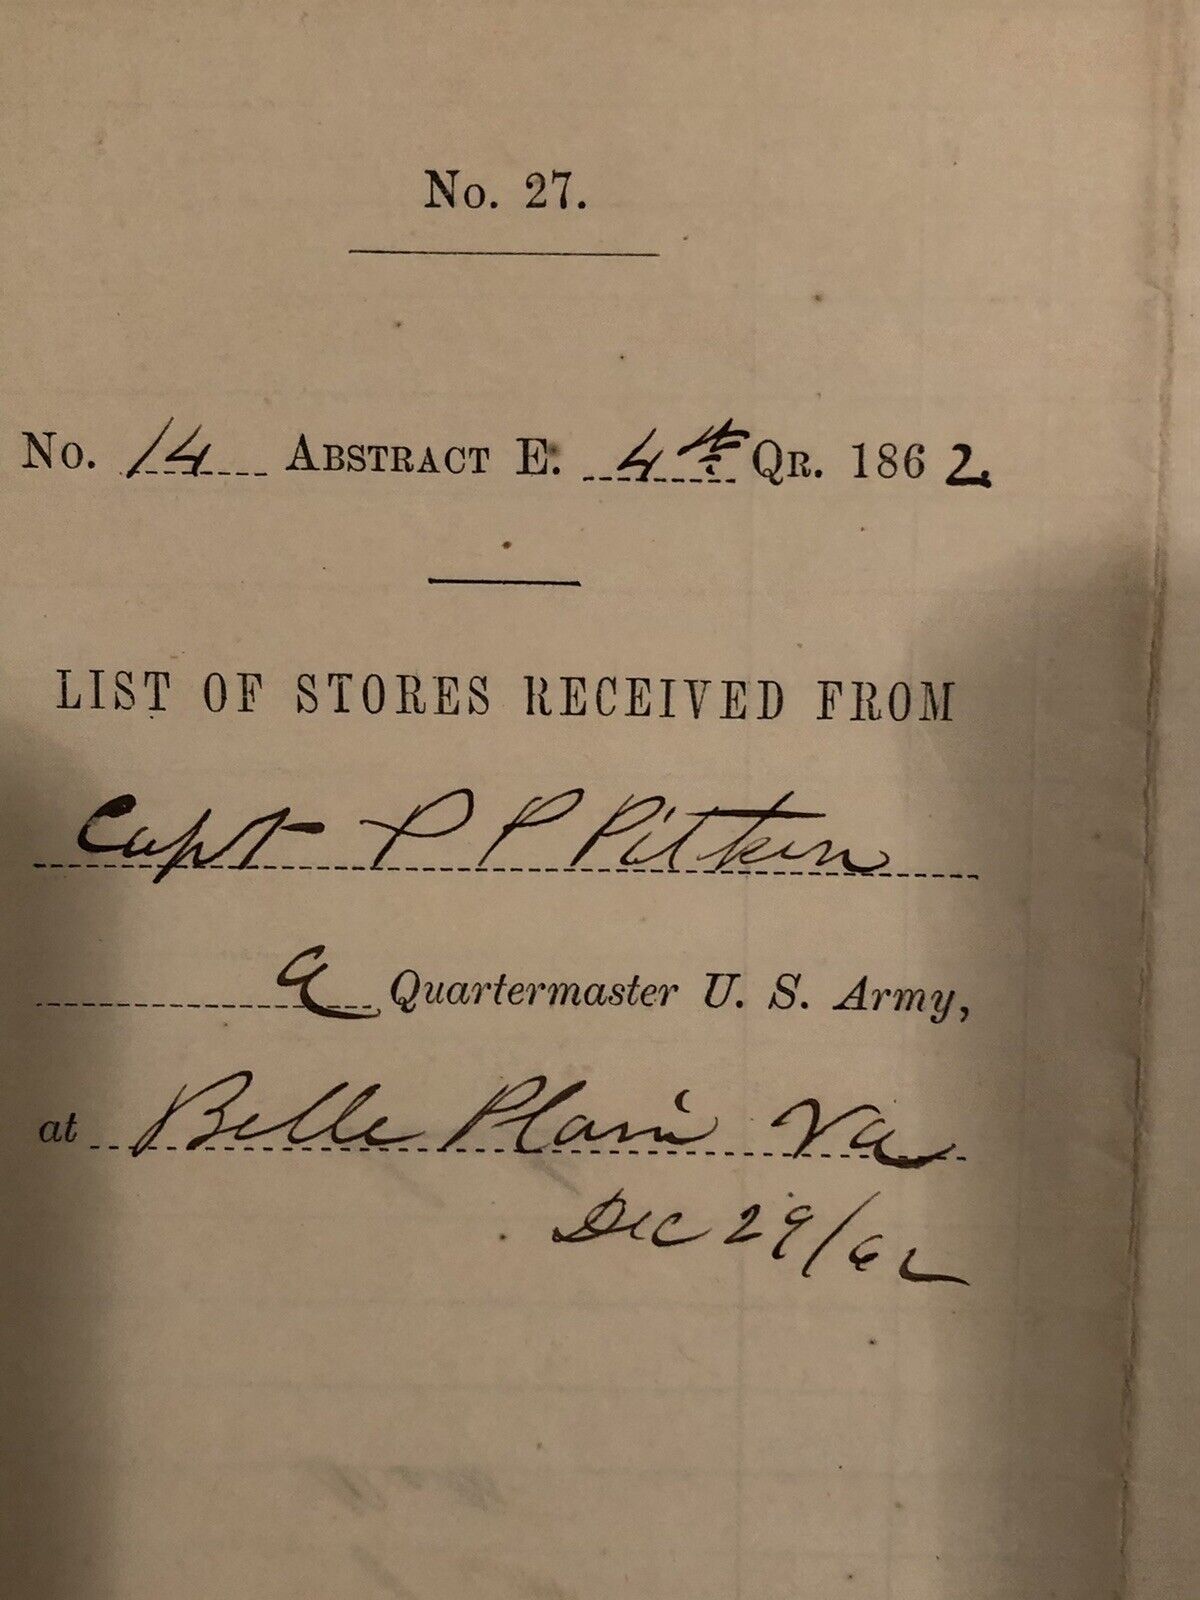 No. 27.
No. 14 ABSTRACT E. 4th QR. 1862.
LIST OF STORES RECEIVED FROM
Capt P P Pitkin
a Quartermaster U. S. Army,
at Belle Plain Va
Dec 29/62